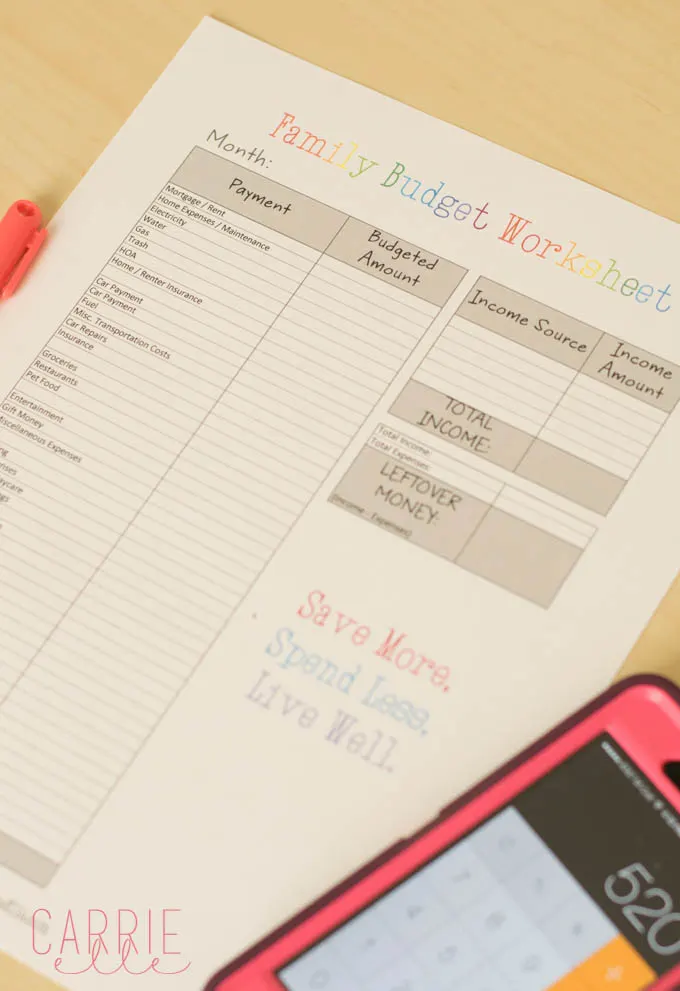 Family Budget Worksheet
Month:
Payment
Budgeted
Amount
Mortgage / Rent
Home Expenses / Maintenance
Electricity
Water
Gas
Trash
HOA
Home / Renter Insurance
Car Payment
Car Payment
Fuel
Misc. Transportation Costs
Car Repairs
Insurance
Groceries
Restaurants
Pet Food
Entertainment
Gift Money
Income Source
Income
Amount
TOTAL
INCOME:
Total Income:
Total Expenses
LEFTOVER
MONEY:
(Income - Expenses)
Save More.
Spend Less.
Live Well.
520
CARRIE
elle